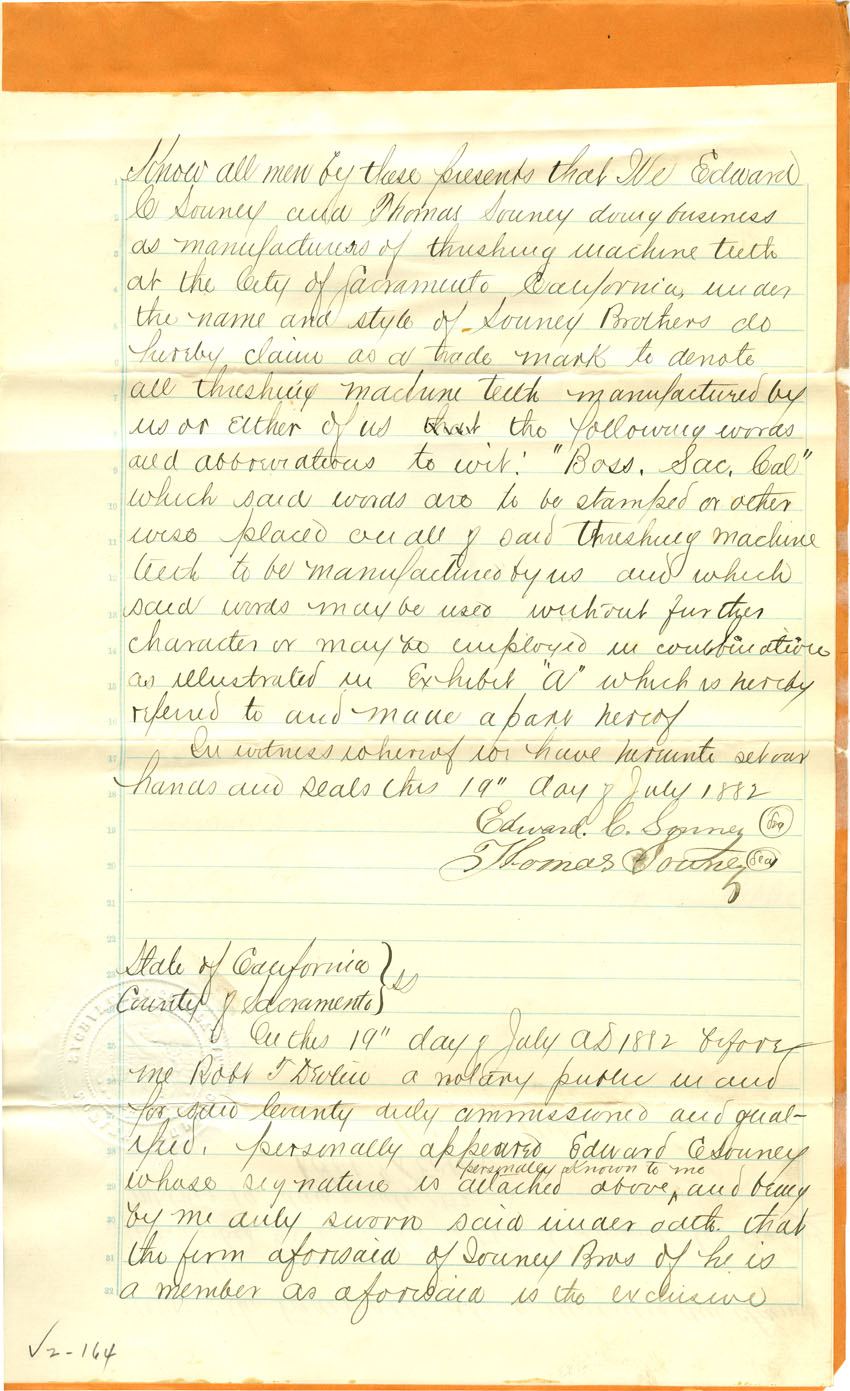 Know all men by these presents that We Edward
C Souney and Thomas Souney doing business
as manufacturers of threshing machine teeth
at the City of Sacramento California, under
the name and style of Souney Brothers do
hereby claim as a trade mark to denote
all threshing machine teeth manufactured by
us or either of us the following words
and abbreviations to wit: "Boss. Sac. Cal"
which said words are to be stamped or other
wise placed on all of said threshing machine
teeth to be manufactured by us and which
said words may be used without further
character or may be employed in combination
as illustrated in Exhibit "A" which is hereby
referred to and made a part hereof
In witness whereof we have hereunto set our
hands and seals this 19" day of July 1882
Edward. C. Souney Sea
Thomas Souney Seal
State of California
County of Sacramento } ss
On this 19" day of July AD 1882 before
me Robt T Devlin a notary public in and
for said County duly commissioned and qual-
ified, personally appeared Edward C Souney
personally known to me
whose signature is attached above, and being
by me duly sworn said under oath that
the firm aforesaid of Souney Bros of he is
a member as aforesaid is the exclusive
√2-164